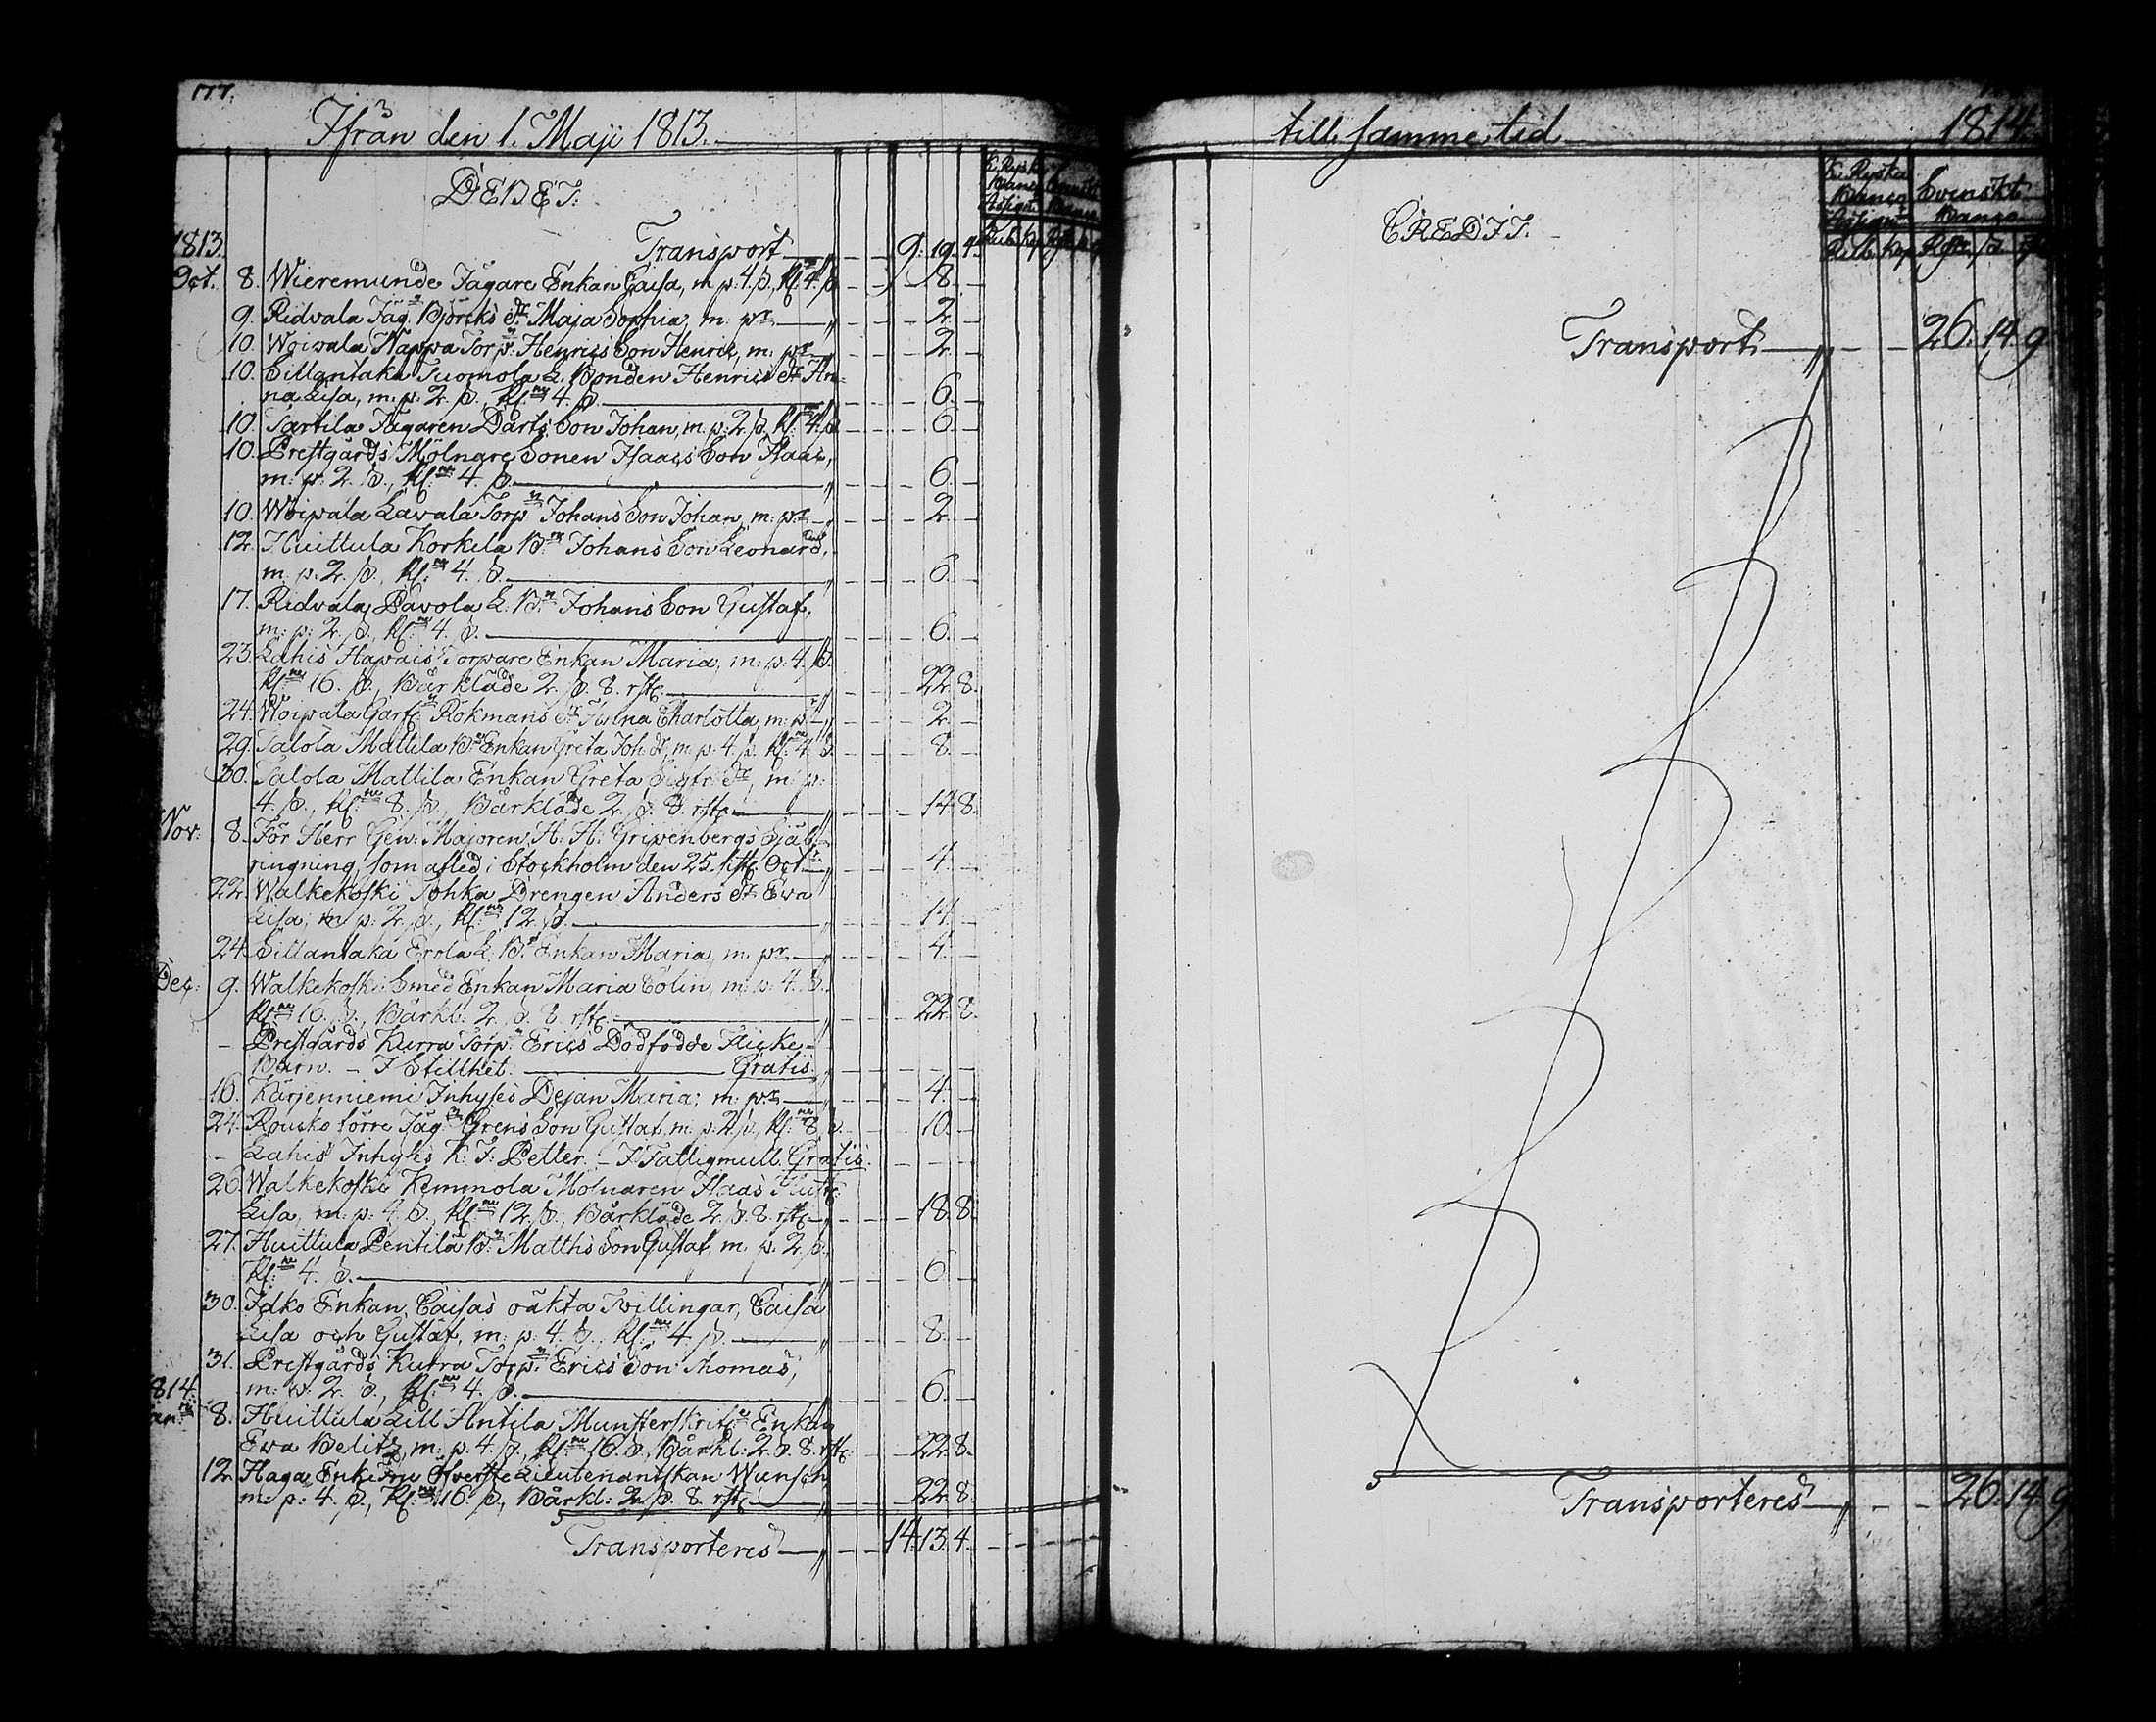 177.
Ifrån den 1. Maji 1813.
DEBET.
1813. Transport 9. 19. 4.
Oct. 8. Wieremunde Jägare Enkan Caisa, m. p: 4. ß., Kl: 4. ß. 8.
9. Ridvala Jäg. Björcks dr Maja Sophia, m: pr 2.
10. Woipala Nappa Torp: Henrics Son Henric, m: pr 2.
10. Sillantaka Tuomola L. Bonden Henrics dr An-
na Lisa, m: p: 2. ß., Kl: 4. ß. 6.
10. Tartila Jägaren Darts Son Johan, m: p: 2. ß. Kl: 4. ß. 6.
10. Prestgårds Mölnare Sonen Isaacs Son Isaac,
m: p: 2. ß., Kl: 4. ß. 6.
10. Woipala Lavala Torp: Johans Son Johan, m: pr 2.
12. Huittula Korkila B: Johans Son Leonard,
m: p: 2. ß., Kl: 4. ß. 6.
17. Ridvala Pavola L: B: Johans Son Gustaf,
m: p: 2. ß., Kl: 4. ß. 6.
23. Lahis Hapais Torpare Enkan Maria, m: p: 4. ß.
Kl: 16. ß., Bårkläde 2. ß. 8. rst: 22. 8.
24. Woipala Garf: Rökmans dr Helna Charlotta, m: pr 2.
29. Salola Mattila B: Enkan Greta Joh: dr, m: p: 4. ß. Kl: 4. ß. 8.
30. Salola Mattila Enkan Greta Sigfr: dr, m: p:
4. ß., Kl: 8. ß., Bårkläde 2. ß. 8. rst: 14. 8.
Nov: 8. För Herr Gen: Majoren, H: H: Gripenbergs Själ-
ringning, som afled i Stockholm den 25. sistl: Oct: 4.
22. Walkekoski Tohka Drengen Anders dr Eva
Lisa, m: p: 2. ß., Kl: 12. ß. 14.
24. Sillantaka Erola L: B: Enkan Maria, m: pr 4.
Dec: 9. Walkekoski Smed Enkan Maria Colin, m: p: 4. ß.
Kl: 16. ß., Bårkl: 2. ß. 8. rst: 22. 8.
- Prestgårds Kurra Torp: Erics Dödfödde Flicke-
Barn. - I Stillhet. Gratis.
16. Kärjenniemi Inhyses Pejan Maria, m: pr 4.
24. Rouko Sörre Jäg: Grens Son Gustaf, m: p: 2. ß., Kl: 8. ß. 10.
- Lahis Inhyses K: J: Petter. - I Fattigmull. Gratis.
26. Walkekoski Kemmola Mölnaren Isaacs Hustr:
Lisa, m: p: 4. ß., Kl: 12. ß., Bårkläde 2. ß. 8. rst: 18. 8.
27. Huittula Pentilä B: Matths Son Gustaf, m: p: 2. ß.
Kl: 4. ß. 6.
30. Idko Enkan Caisas oäkta Tvillingar, Caisa
Lisa och Gustaf, m: p: 4. ß., Kl: 4. ß. 8.
31. Prestgårds Kurra Torp: Erics Son Thomas,
m: p: 2. ß., Kl: 4. ß. 6.
1814.
Jan: 8. Huittula Lill Antila Munsterskrif: Enkan
Eva Belitz, m: p: 4. ß., Kl: 16. ß., Bårkl: 2. ß. 8. rst: 22. 8.
12. Haga Enke Fru Öfverste Lieutenantskan Wunsch,
m: p: 4. ß., Kl: 16. ß., Bårkl: 2. ß. 8. rst: 22. 8.
Transporteres 14. 13. 4.
till samme tid 1814.
CREDIT.
Ryska Svenskt
Banco Banco
Rub. Kop. Rdr ß. rst
Transport 26. 14. 9
Transporteres 26. 14. 9